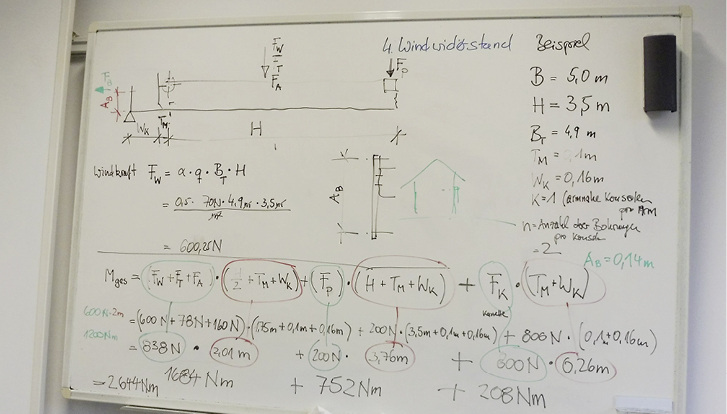 4. Windwiderstand
Beispiel
F_W
F_T
F_A
F_P
B = 5,0 m
H = 3,5 m
B_T = 4,9 m
T_M = 0,1m
W_K = 0,16m
K = 1 (armnahe Konsolen
pro Arm
n = Anzahl der Bohrungen
pro Konsole
= 2
A_B = 0,14m
A_B
T_M
W_K
H
A_B
Windkraft F_W = α · q · B_T · H
= 0,5 · 70N · 4,9m · 3,5m
m²
= 600,25N
M_ges = (F_W + F_T + F_A) · (H/2 + T_M + W_K) + (F_P) · (H + T_M + W_K) + F_K · (T_M + W_K)
600N · 2m
1200Nm
= (600N + 78N + 160N) · (1,75m + 0,1m + 0,16m) + 200N · (3,5m + 0,1m + 0,16m) + 800N · (0,1m + 0,16m)
= 838N · 2,01m + 200N · 3,76m + 800N · 0,26m
= 2644Nm 1684Nm + 752Nm + 208Nm